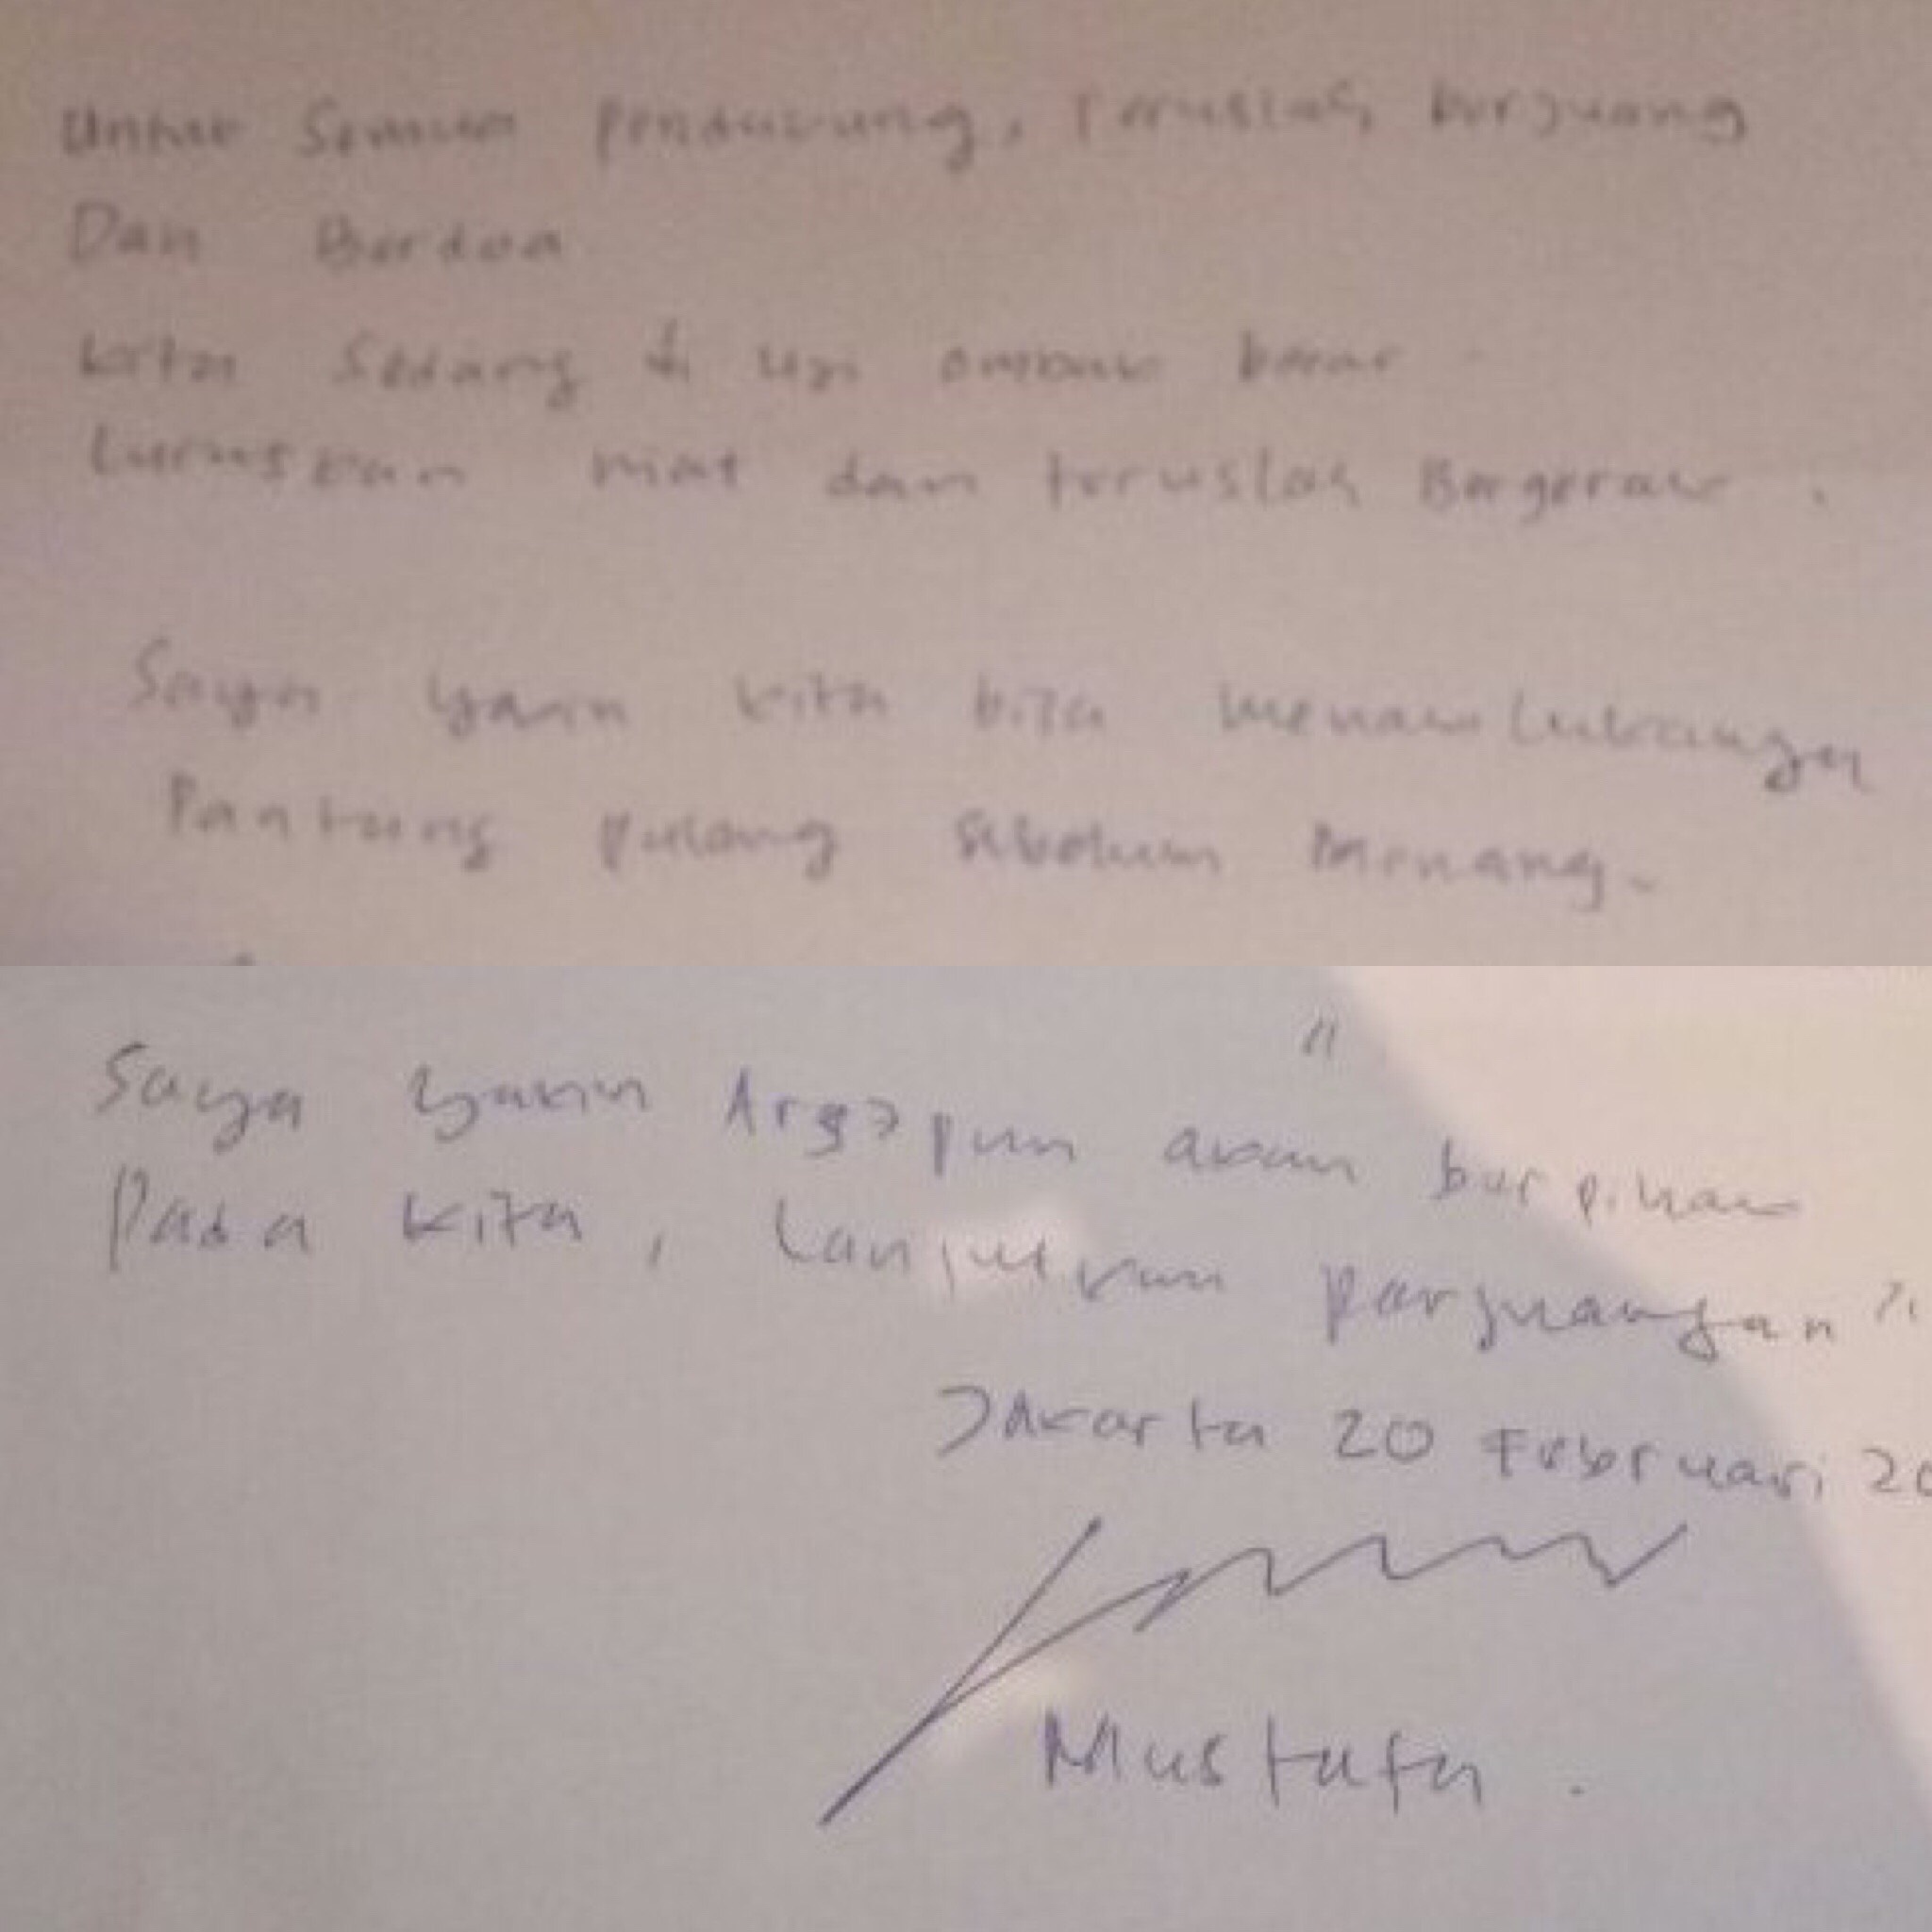 Untuk Semua pendukung, Teruslah berjuang
Dan Berdoa
Kita Sedang di uji ombak besar
Luruskan niat dan teruslah Bergerak.
Saya yakin kita bisa
Pantang pulang sebelum Menang.
"
Saya yakin Arsy pun akan berpihak
Pada kita, Lanjutkan perjuangan
Jakarta 20 Februari 20
Mustafa.